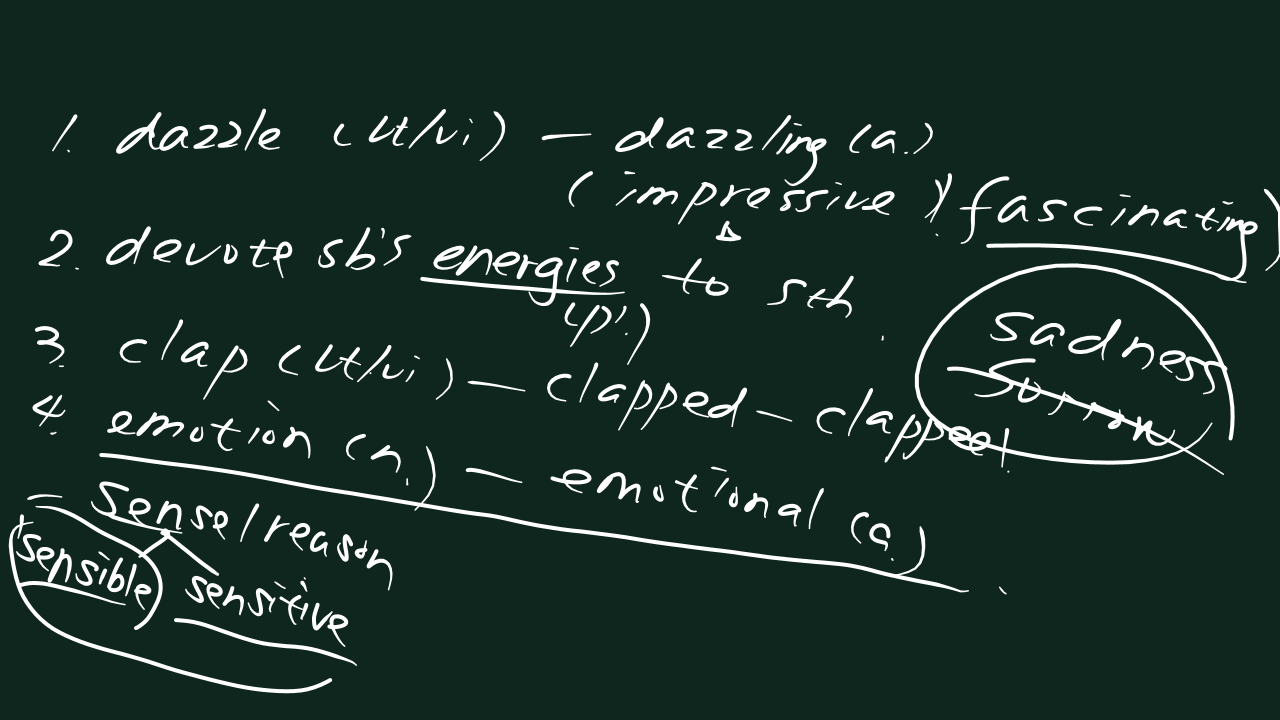 1. dazzle (vt/vi) — dazzling (a.)
(impressive)(fascinating)
2. devote sb's energies to sth.
(pl.)
3. clap (vt/vi) — clapped — clapped
sadness
4. emotion (n.) — emotional (a.)
— sense/reason
sensible sensitive